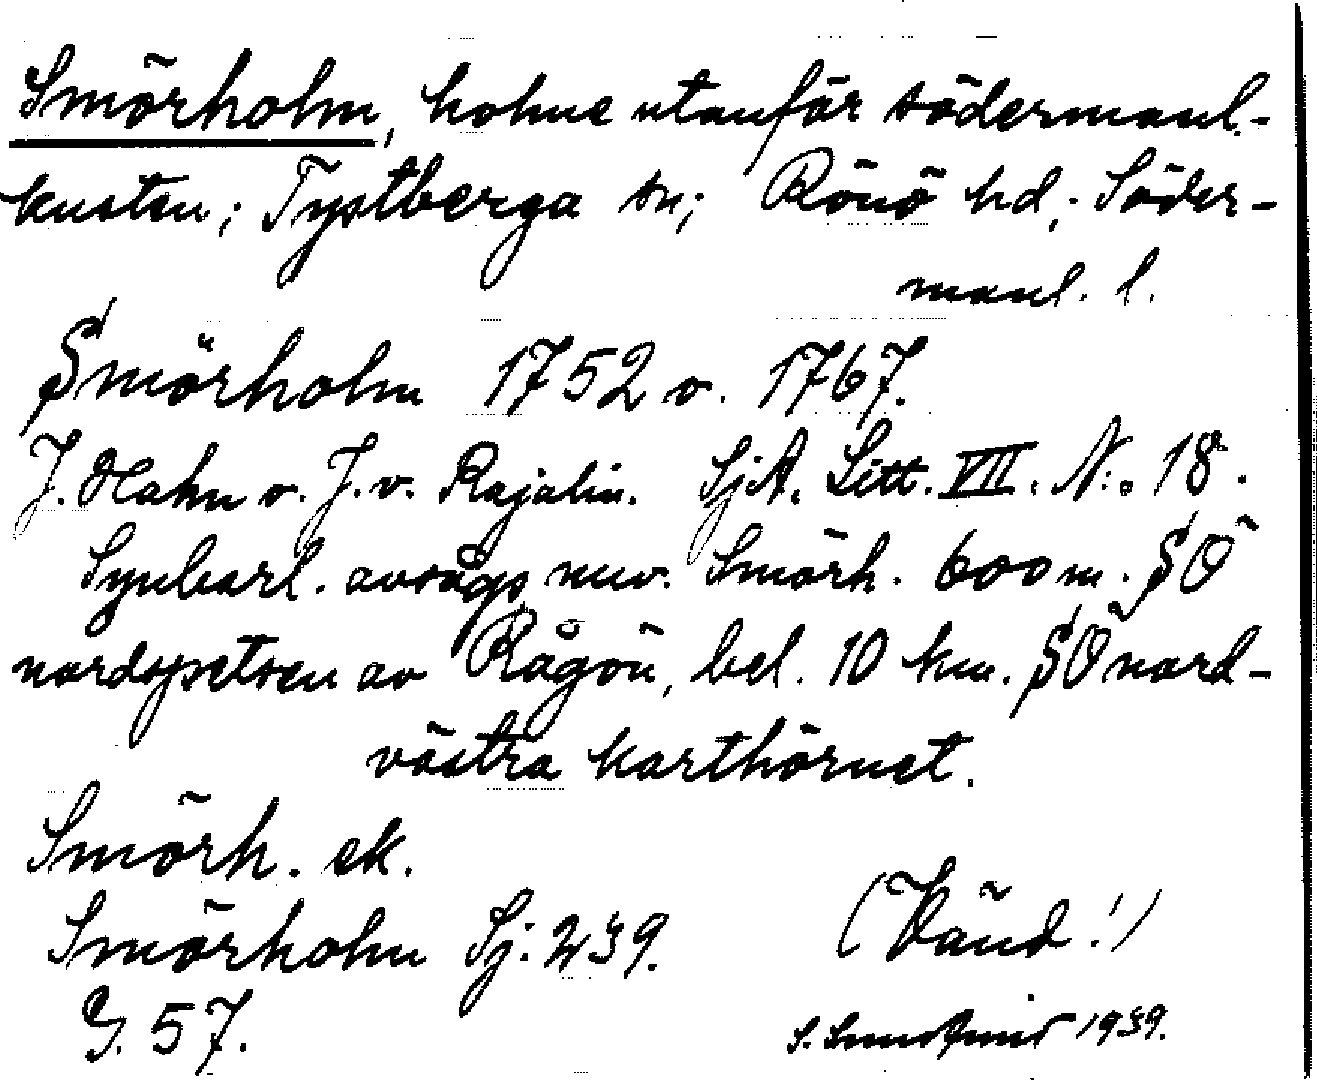 Smörholm, holme utanför södermanl.-
kusten; Tystberga sn; Rönö hd; Söder-
manl. l.
Smörholm 1752 o. 1767.
J. Hahn o. J. v. Rajalin. SjA. Litt. VII. N:o 18.
Synbarl. avsågs nuv. Smörh. 600 m. SÖ
nordspetsen av Rågön, bel. 10 km. SÖ nord-
västra karthörnet.
Smörh. ek.
Smörholm Sj: 239.
G. 57.
(Vänd!)
S. 1939.